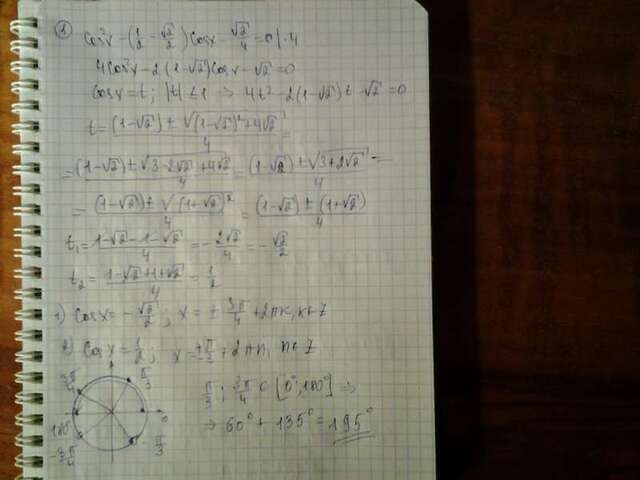 cos²x - (1/2 - √2/2) cosx - √2/4 = 0 | · 4
4cos²x - 2(1-√2)cosx - √2 = 0
Cosx = t; |t| ≤ 1 ⇒ 4t² - 2(1-√2)t - √2 = 0
t = ((1-√2) ± √((1-√2)² + 4√2))/4 =
= ((1-√2) ± √(3-2√2+4√2))/4 = ((1-√2) ± √(3+2√2))/4 =
= ((1-√2) ± √(1+√2)²)/4 = ((1-√2) ± (1+√2))/4
t₁ = (1-√2-1-√2)/4 = -2√2/4 = -√2/2
t₂ = (1-√2+1+√2)/4 = 1/2
1) Cosx = -√2/2; x = ± 3π/4 + 2πk, k∈Z
2) Cosx = 1/2; x = ±π/3 + 2πn, n∈Z
3π/4 π/3
π/3; 3π/4 ∈ [0°, 180°] ⇒
0
180°
⇒ 60° + 135° = 195°
-3π/4 -π/3